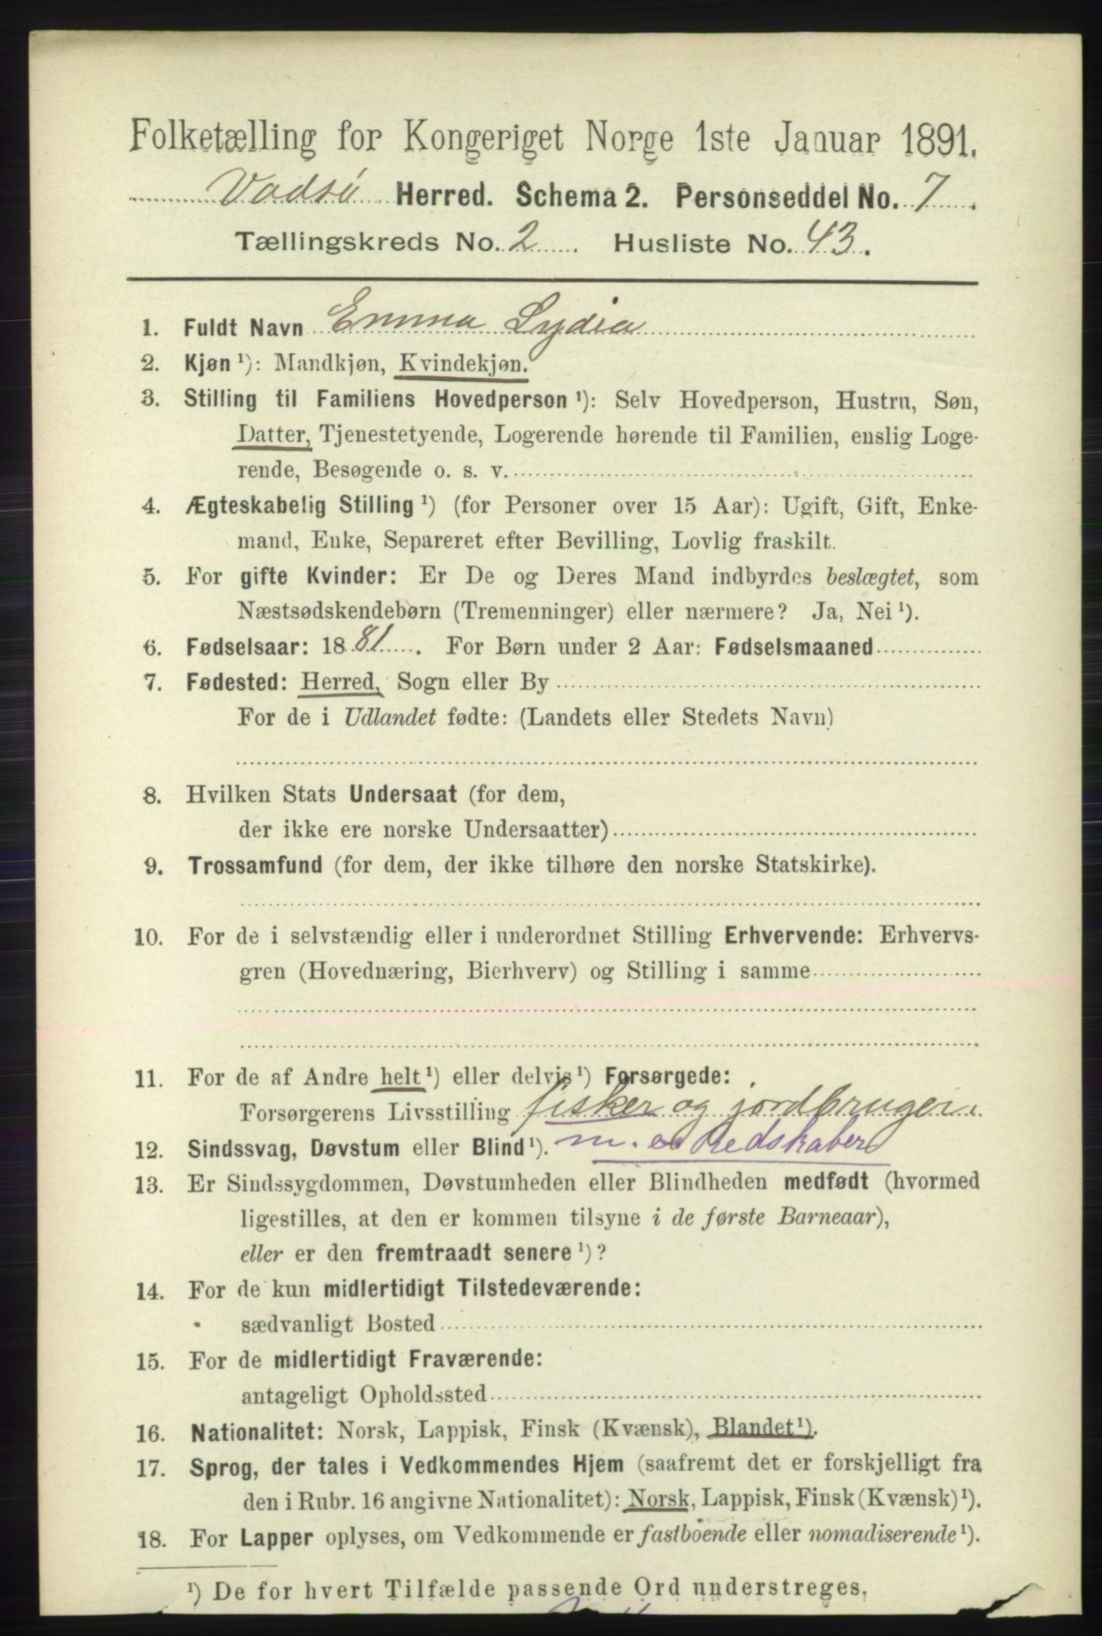 Folketælling for Kongeriget Norge 1ste Januar 1891.
Vadsø Herred. Schema 2. Personseddel No. 7.
Tællingskreds No. 2. Husliste No. 43.
1. Fuldt Navn Emma Lydia
2. Kjøn ¹): Mandkjøn, Kvindekjøn.
3. Stilling til Familiens Hovedperson ¹): Selv Hovedperson, Hustru, Søn,
Datter, Tjenestetyende, Logerende hørende til Familien, enslig Loge-
rende, Besøgende o. s. v.
4. Ægteskabelig Stilling ¹) (for Personer over 15 Aar): Ugift, Gift, Enke-
mand, Enke, Separeret efter Bevilling, Lovlig fraskilt.
5. For gifte Kvinder: Er De og Deres Mand indbyrdes beslægtet, som
Næstsødskendebørn (Tremenninger) eller nærmere? Ja, Nei ¹).
6. Fødselsaar: 1881. For Børn under 2 Aar: Fødselsmaaned
7. Fødested: Herred, Sogn eller By
For de i Udlandet fødte: (Landets eller Stedets Navn)
8. Hvilken Stats Undersaat (for dem,
der ikke ere norske Undersaatter)
9. Trossamfund (for dem, der ikke tilhøre den norske Statskirke).
10. For de i selvstændig eller i underordnet Stilling Erhvervende: Erhvervs-
gren (Hovednæring, Bierhverv) og Stilling i samme
11. For de af Andre helt ¹) eller delvis ¹) Forsørgede:
Forsørgerens Livsstilling fisker og jordbruger.
12. Sindssvag, Døvstum eller Blind ¹). m. Redskaber
13. Er Sindssygdommen, Døvstumheden eller Blindheden medfødt (hvormed
ligestilles, at den er kommen tilsyne i de første Barneaar),
eller er den fremtraadt senere ¹)?
14. For de kun midlertidigt Tilstedeværende:
sædvanligt Bosted
15. For de midlertidigt Fraværende:
antageligt Opholdssted
16. Nationalitet: Norsk, Lappisk, Finsk (Kvænsk), Blandet ¹).
17. Sprog, der tales i Vedkommendes Hjem (saafremt det er forskjelligt fra
den i Rubr. 16 angivne Nationalitet): Norsk, Lappisk, Finsk (Kvænsk) ¹).
18. For Lapper oplyses, om Vedkommende er fastboende eller nomadiserende ¹).
¹) De for hvert Tilfælde passende Ord understreges.